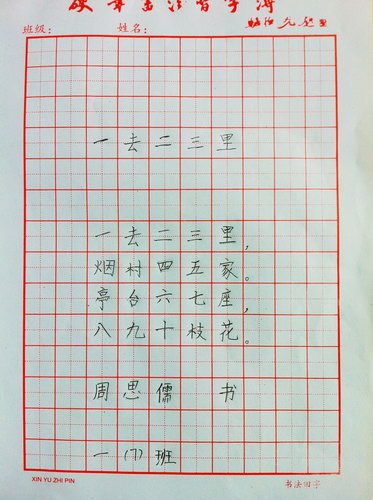 硬笔书法習字簿
班级：　　姓名：
一去二三里
一去二三里，
烟村四五家。
亭台六七座，
八九十枝花。
周思儒　书
一（7）班
XIN YU ZHI PIN　　书法田字